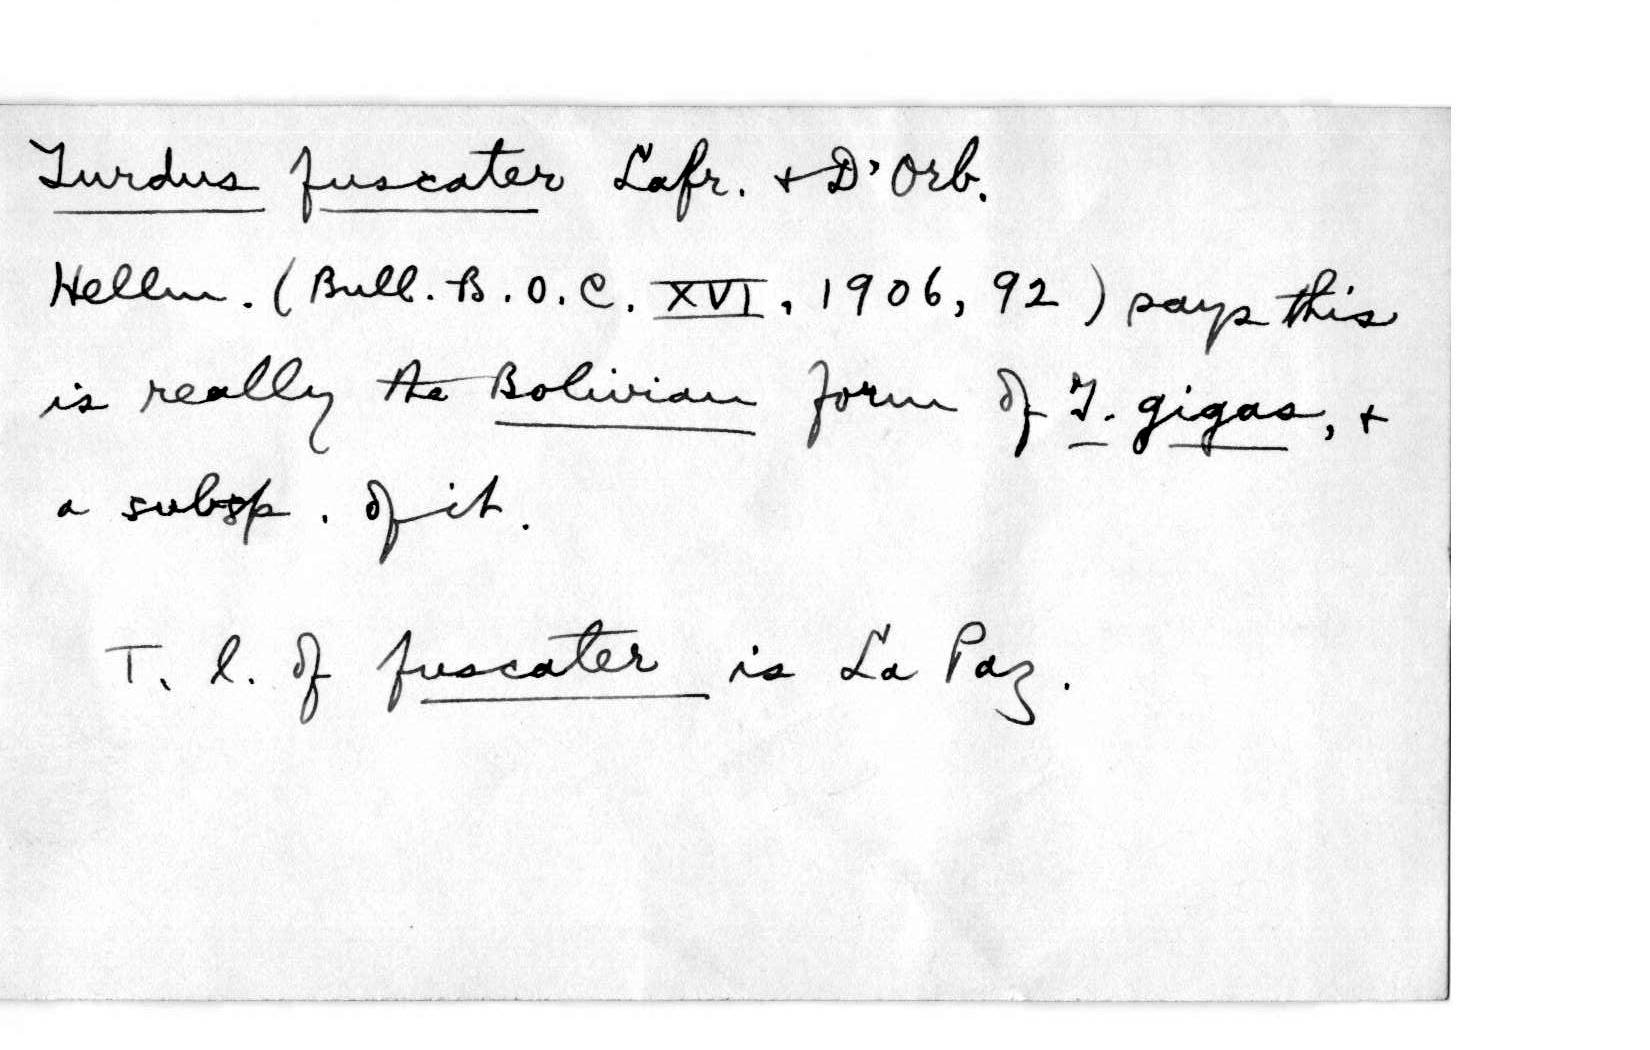 Turdus fuscater Lafr. + D'Orb.
Hellm. (Bull. B.O.C. XVI, 1906, 92) says this
is really the Bolivian form of T. gigas, +
a subsp. of it.
T. l. of fuscater is La Paz.